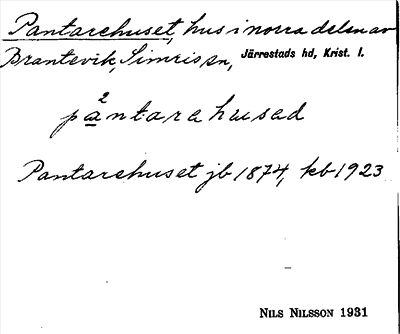 Pantarehuset, hus i norra delen av
Brantevik, Simris sn, Järrestads hd, Krist. l.
2
pantarahusad
Pantarehuset jb 1874, kb 1923
NILS NILSSON 1931